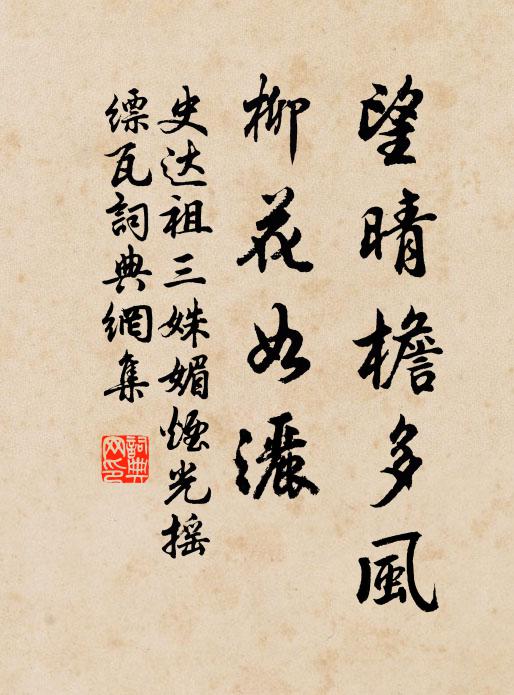 望晴檐多風
柳花如灑
史达祖三姝媚煙光摇
缥瓦詞典網集
詞典
网印